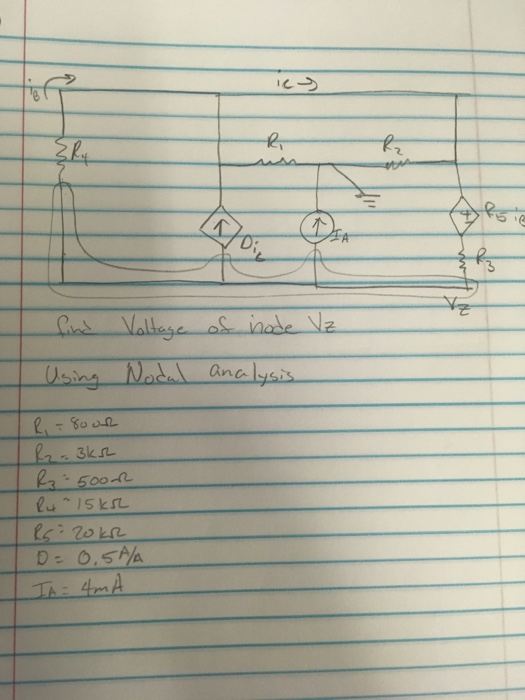 iB
ic →
R1
R2
R4
Dic
IA
R5 iB
R3
Vz
find Voltage of node Vz
Using Nodal analysis
R1 = 800Ω
R2 = 3kΩ
R3 = 500Ω
R4 = 15kΩ
R5 = 20kΩ
D = 0.5A/A
IA = 4mA